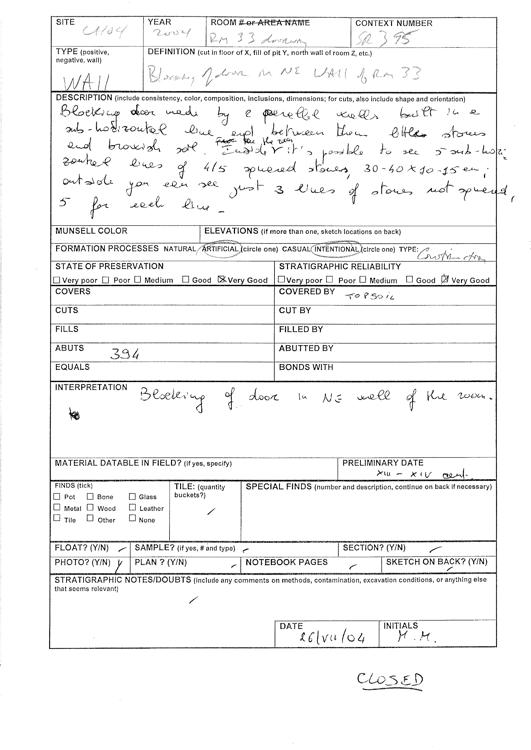 SITE YEAR ROOM # or AREA NAME CONTEXT NUMBER
CH04 2004 RM 33 doorway SR 395
TYPE (positive, negative, wall) DEFINITION (cut in floor of X, fill of pit Y, north wall of room Z, etc.)
WAll Blocking of door in NE WAll of Rm 33
DESCRIPTION (include consistency, color, composition, inclusions, dimensions; for cuts, also include shape and orientation)
Blocking door made by 2 parallel walls built in a
sub-horizontal line and between them little stones
and brownish soil. from the room
Inside it's possible to see 5 sub-hori-
zontal lines of 4/5 squared stones, 30-40 x 10-15 cm;
outside you can see just 3 lines of stones not squared,
5 for each line.
MUNSELL COLOR ELEVATIONS (if more than one, sketch locations on back)
FORMATION PROCESSES NATURAL ARTIFICIAL (circle one) CASUAL INTENTIONAL (circle one) TYPE: Construction
STATE OF PRESERVATION STRATIGRAPHIC RELIABILITY
Very poor Poor Medium Good Very Good Very poor Poor Medium Good Very Good
COVERS COVERED BY TOPSOIL
CUTS CUT BY
FILLS FILLED BY
ABUTS 394 ABUTTED BY
EQUALS BONDS WITH
INTERPRETATION Blocking of door in NE wall of the room.
MATERIAL DATABLE IN FIELD? (if yes, specify) PRELIMINARY DATE
XIII - XIV cent.
FINDS (tick) TILE: (quantity buckets?) SPECIAL FINDS (number and description, continue on back if necessary)
Pot Bone Glass
Metal Wood Leather
Tile Other None
FLOAT? (Y/N) SAMPLE? (if yes, # and type) SECTION? (Y/N)
PHOTO? (Y/N) Y PLAN ? (Y/N) NOTEBOOK PAGES SKETCH ON BACK? (Y/N)
STRATIGRAPHIC NOTES/DOUBTS (include any comments on methods, contamination, excavation conditions, or anything else
that seems relevant)
DATE INITIALS
26/VII/04 M.M.
CLOSED